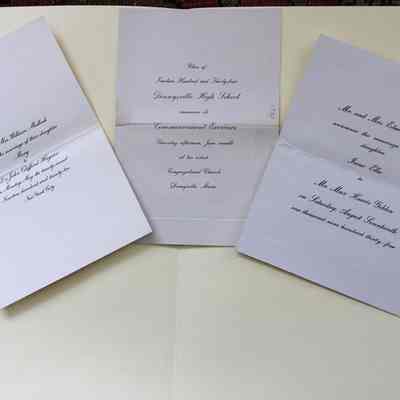 Mr. William
the marriage of their daughter
Mary
to
Dr. John Clifford
on Monday, May the twenty second
nineteen hundred and thirty-five
New York City
Class of
Nineteen Hundred and Thirty-four
Dennysville High School
announces its
Commencement Exercises
Saturday afternoon, June
at two o'clock
Congregational Church
Dennysville, Maine
Mr. and Mrs.
announce the marriage
daughter
to
Mr. Max Harris
on Saturday, August Seventeenth
one thousand nine hundred thirty-five